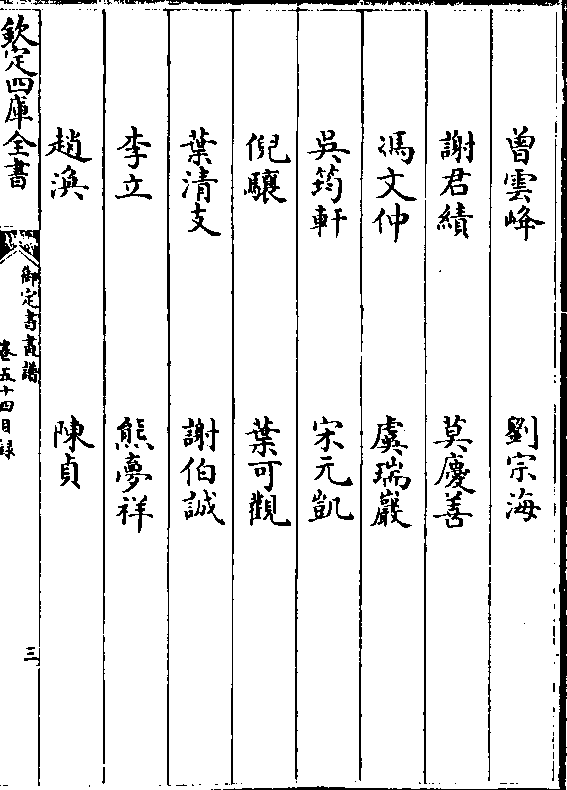 曾雲峰　劉宗海
謝君績　莫慶善
馮文仲　虞瑞巖
吳筠軒　宋元凱
倪驤　葉可觀
葉清支　謝伯誠
李立　熊夢祥
趙渙　陳貞
欽定四庫全書
御定書畫譜
卷五十四目録
三